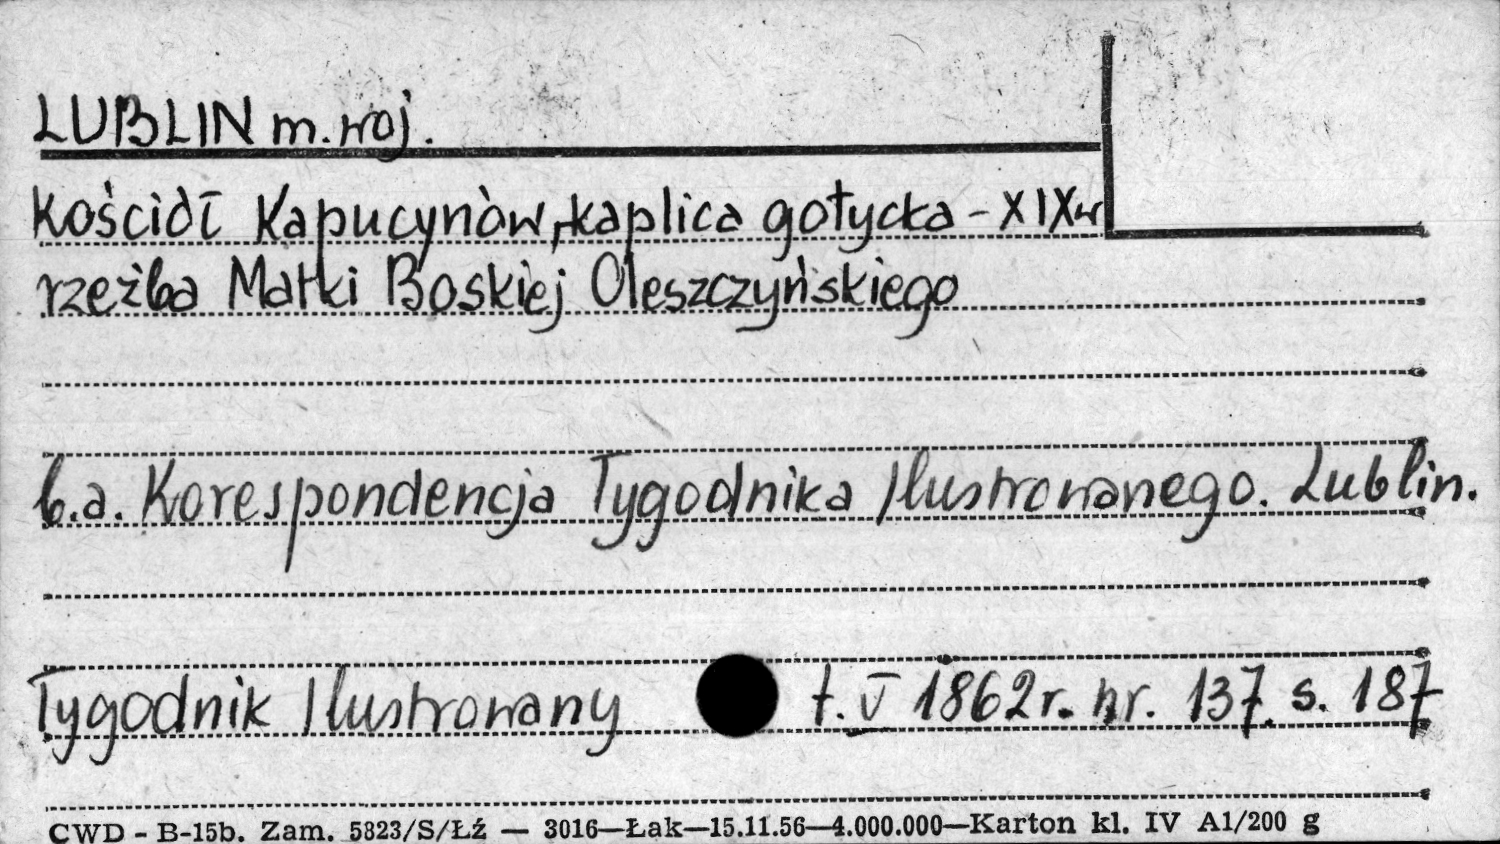 LUBLIN m. woj.
Kościół Kapucynów, kaplica gotycka - XIXw
rzeźba Matki Boskiej Oleszczyńskiego
b.a. Korespondencja Tygodnika Ilustrowanego. Lublin.
Tygodnik Ilustrowany t. V 1862r. nr. 137. s. 187
CWD - B-15b. Zam. 5823/S/Łź — 3016—Łak—15.11.56—4.000.000—Karton kl. IV A1/200 g